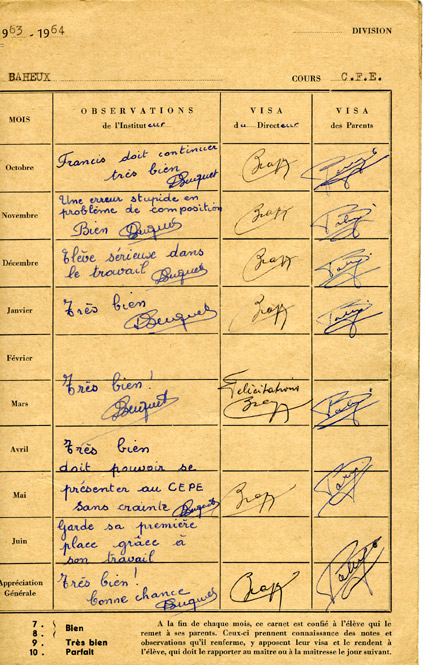 963 - 1964 DIVISION
BAHEUX COURS C.F.E.
MOIS OBSERVATIONS de l'Instituteur VISA du Directeur VISA des Parents
Octobre Francis doit continuer
très bien Buquet
Novembre Une erreur stupide en
problème de composition
Bien Buquet
Décembre Elève sérieuse dans
le travail Buquet
Janvier Très bien
Buquet
Février
Mars Très bien! Félicitations
Buquet
Avril Très bien
doit pouvoir se
Mai présenter au CEPE
sans crainte Buquet
Juin Garde sa première
place grâce à
son travail
Appréciation Générale Très bien!
bonne chance Buquet
7 .
8 . } Bien
9 . Très bien
10 . Parfait
A la fin de chaque mois, ce carnet est confié à l'élève qui le
remet à ses parents. Ceux-ci prennent connaissance des notes et
observations qu'il renferme, y apposent leur visa et le rendent à
l'élève, qui doit le rapporter au maître ou à la maîtresse le jour suivant.